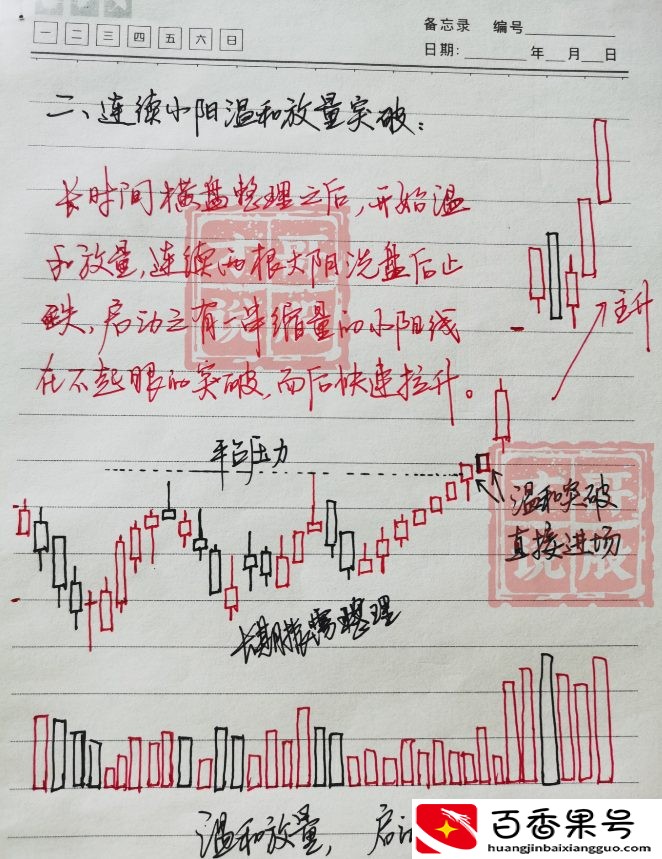 备忘录 编号
一 二 三 四 五 六 日
日期: 年 月 日
二、连续小阳温和放量突破:
长时间横盘整理之后,开始温
和放量,连续两根大阳洗盘后止
跌,启动之有一串缩量的小阳线
在不起眼的突破,而后快速拉升。
主升
平台压力
温和突破
直接进场
长期横盘整理
温和放量,启动
百香果号
huangjinbaixiangguo.com